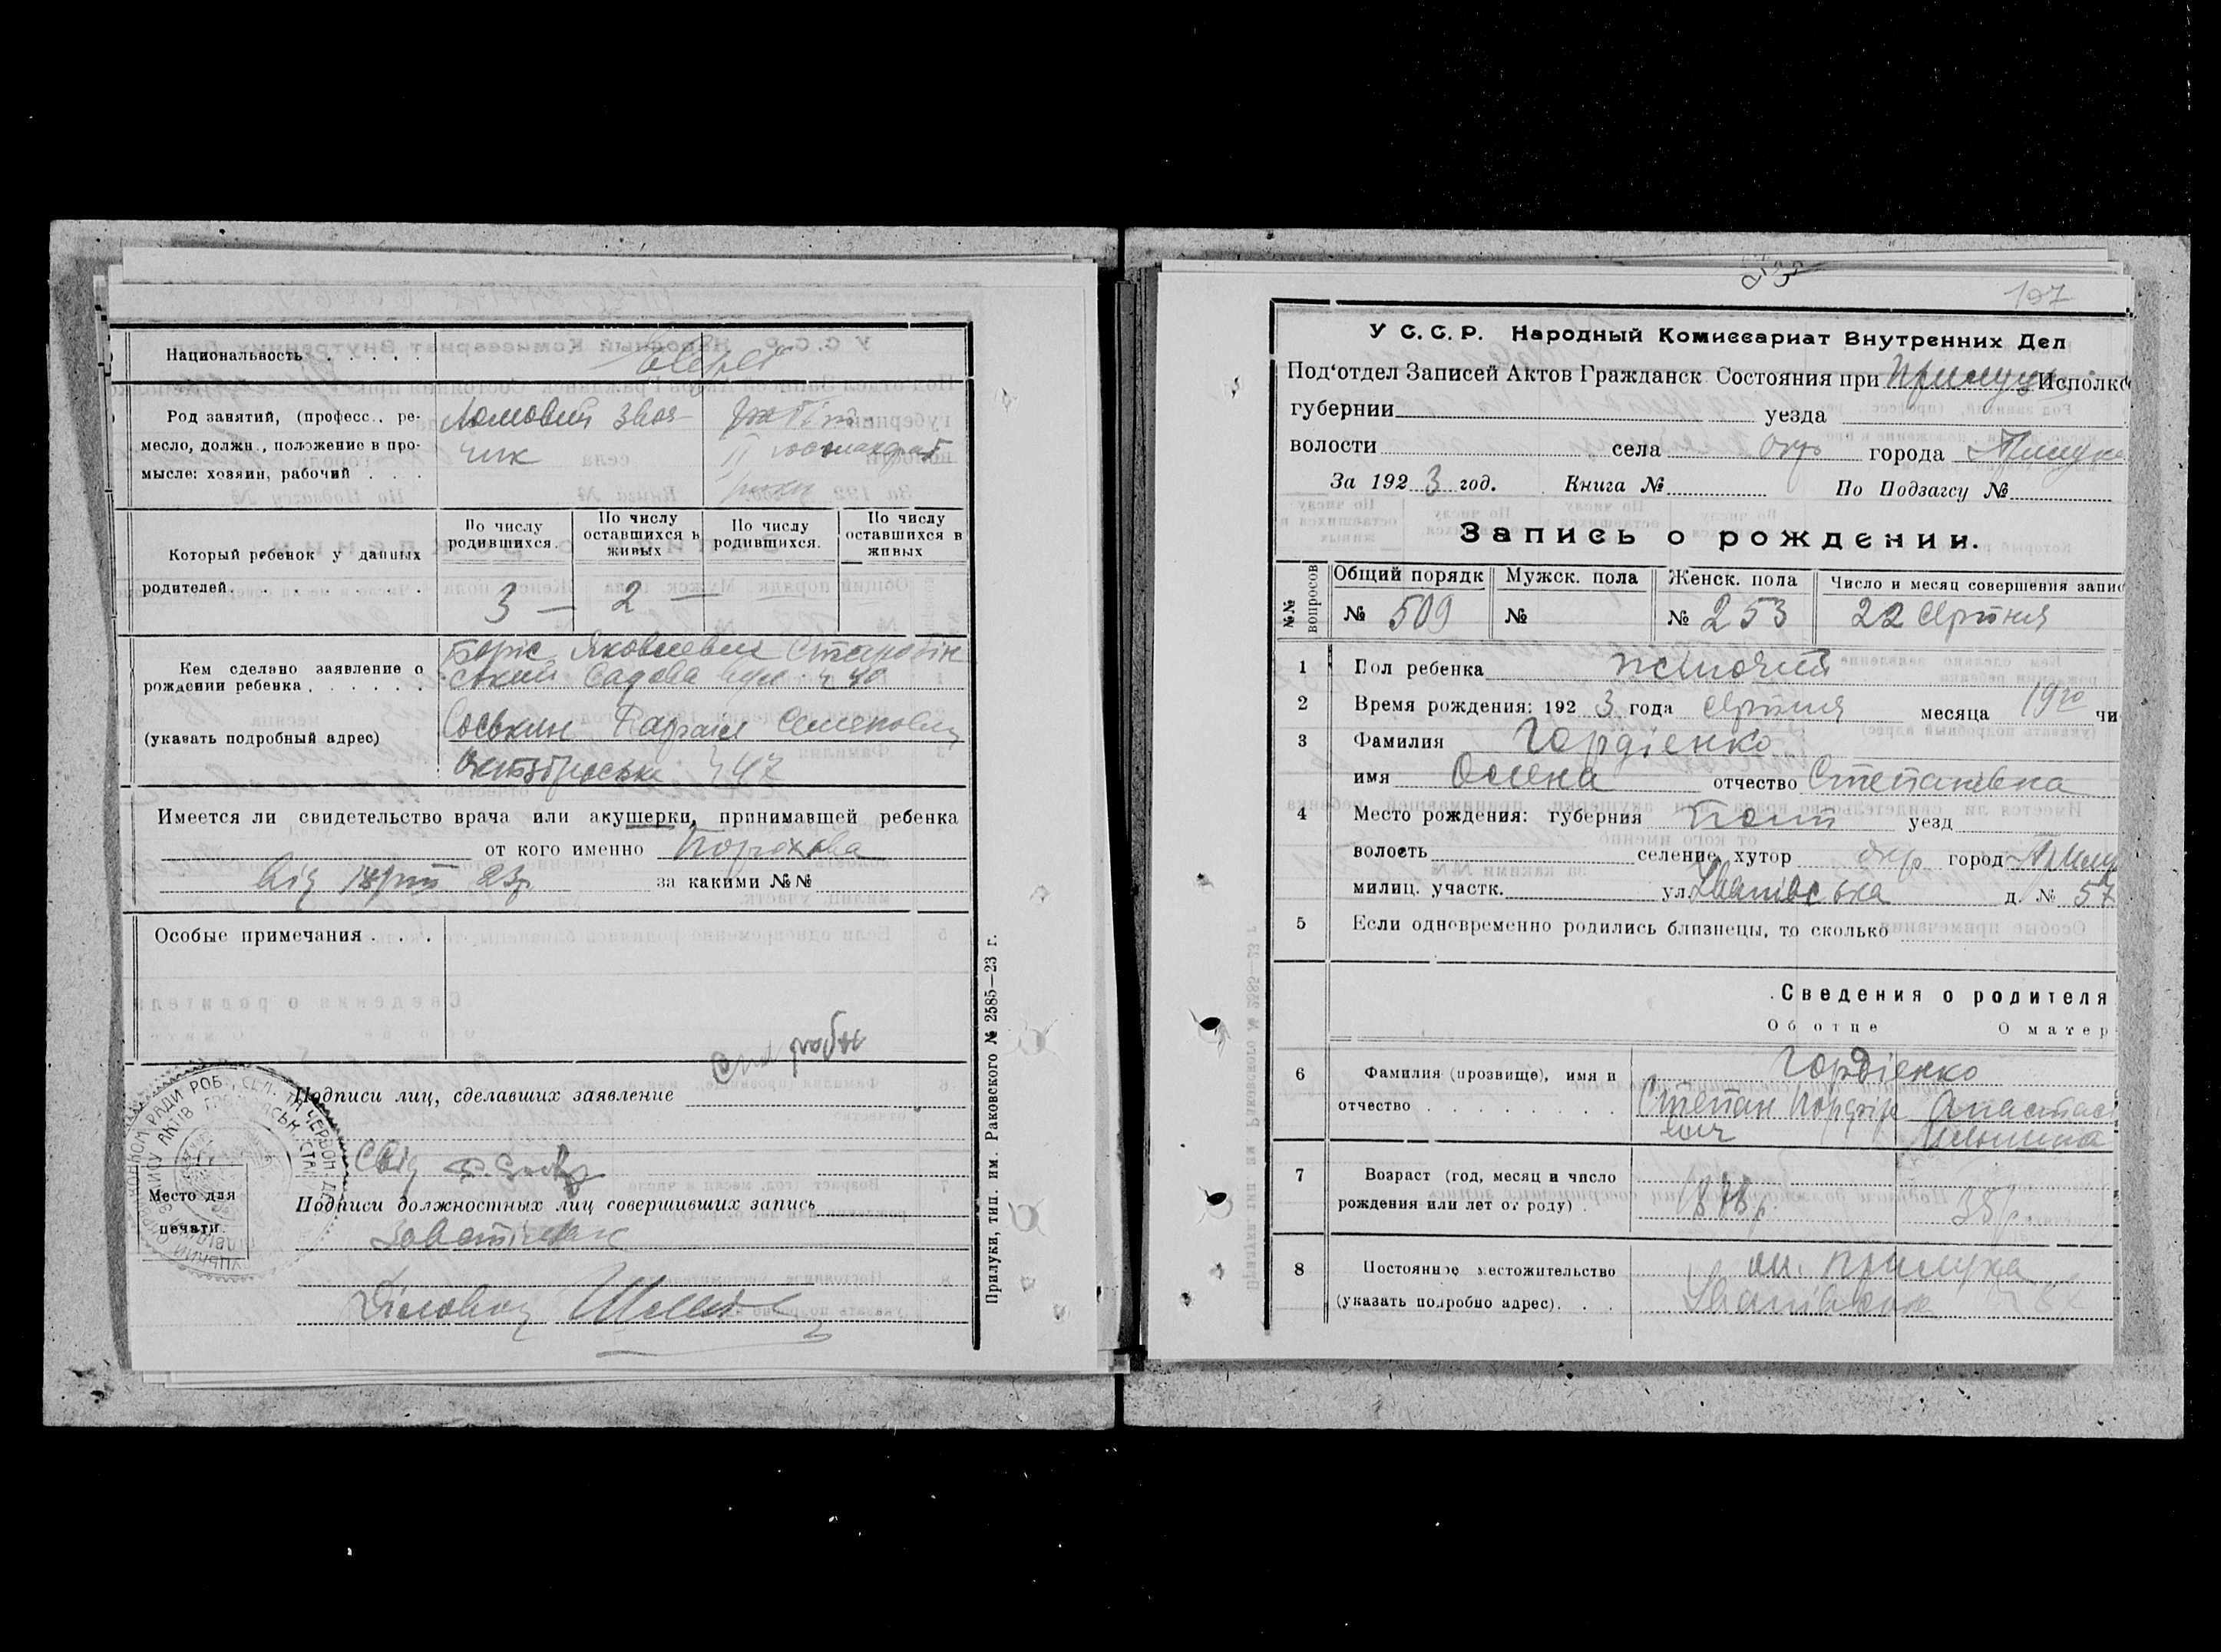 Национальность . . . . .
Род занятий, (професс.. ре-
месло, должн., положение в про-
мысле: хозяин, рабочий . . .
Ломовий звоз-
чик
Который ребенок у данных
родителей. . . . . . . .
По числу родившихся.
По числу оставшихся в живых
По числу родившихся.
По числу оставшихся в живых
3 — 2 —
Кем сделано заявление о
рождении ребенка . . . . . .
(указать подробный адрес)
Борис Яковлевич Старобін
ський Садова вул. ч 40
Соськин Рафаил Семенович
ч 47
Имеется ли свидетельство врача или акушерки, принимавшей ребенка
от кого именно Порохова
від 23р. за какими №№
Особые примечания . . .
Подписи лиц, сделавших заявление
Свід
Подписи должностных лиц совершивших запись
Место для
печати.
Завстілом
Діловод
Прилуки, тип. им. Раковского № 2585—23 г.
107
У С. С. Р. Народный Комиссариат Внутренних Дел
Под'отдел Записей Актов Гражданск. Состояния при Прилуц. Исполко
губернии уезда
волости села окр города Прилука
За 192 3 год. Книга № По Подзагсу №
Запись о рождении.
№№ вопросов
Общий порядк Мужск. пола Женск. пола Число и месяц совершения запис
№ 509 № № 253 22 серпня
1 Пол ребенка жіночий
2 Время рождения: 192 3 года серпня месяца 19го чи
3 Фамилия Гордіенко
имя Олена отчество Степанівна
4 Место рождения: губерния Полт уезд
волость селение, хутор окр. город Прилу
милиц. участк. ул. Іванівська д. № 57
5 Если одновременно родились близнецы, то сколько
Сведения о родителя
Об отце О матер
6 Фамилия (прозвище), имя и
отчество . . . . . . . .
Гордіенко
Степан
вич
Анастас
7 Возраст (год, месяц и число
рождения или лет от роду) .
1878р. 38р.
8 Постоянное местожительство
(указать подробно адрес). . .
м. Прилука
Іванівська